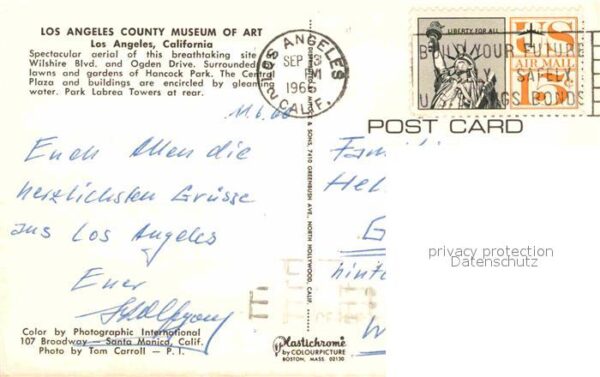 LOS ANGELES COUNTY MUSEUM OF ART
Los Angeles, California
Spectacular aerial of this breathtaking site
Wilshire Blvd. and Ogden Drive. Surrounded
lawns and gardens of Hancock Park. The Central
Plaza and buildings are encircled by gleaming
water. Park Labrea Towers at rear.
LOS ANGELES
SEP 13
PM
1966
CALIF.
2
LIBERTY FOR ALL
US
AIR MAIL
15¢
BUILD YOUR FUTURE
SAFELY
BONDS
POST CARD
Euch Allen die
herzlichsten Grüsse
aus Los Angeles
Euer
Fam
Hel
G
hint
privacy protection
Datenschutz
& SONS, 7410 GREENBUSH AVE., NORTH HOLLYWOOD, CALIF.
Color by Photographic International
107 Broadway — Santa Monica, Calif.
Photo by Tom Carroll — P. I.
Plastichrome
by COLOURPICTURE
BOSTON, MASS. 02130